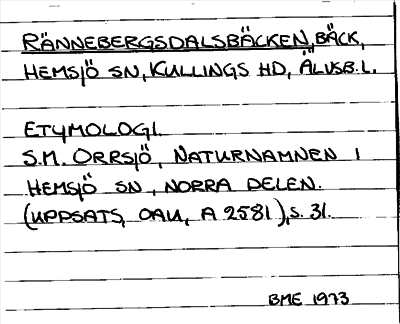 RÄNNEBERGSDALSBÄCKEN, BÄCK,
HEMSJÖ SN, KULLINGS HD, ÄLVSB. L.
ETYMOLOGI.
S.M. ORRSJÖ, NATURNAMNEN I
HEMSJÖ SN, NORRA DELEN.
(UPPSATS, OAU, A 2581), S. 31.
BME 1973